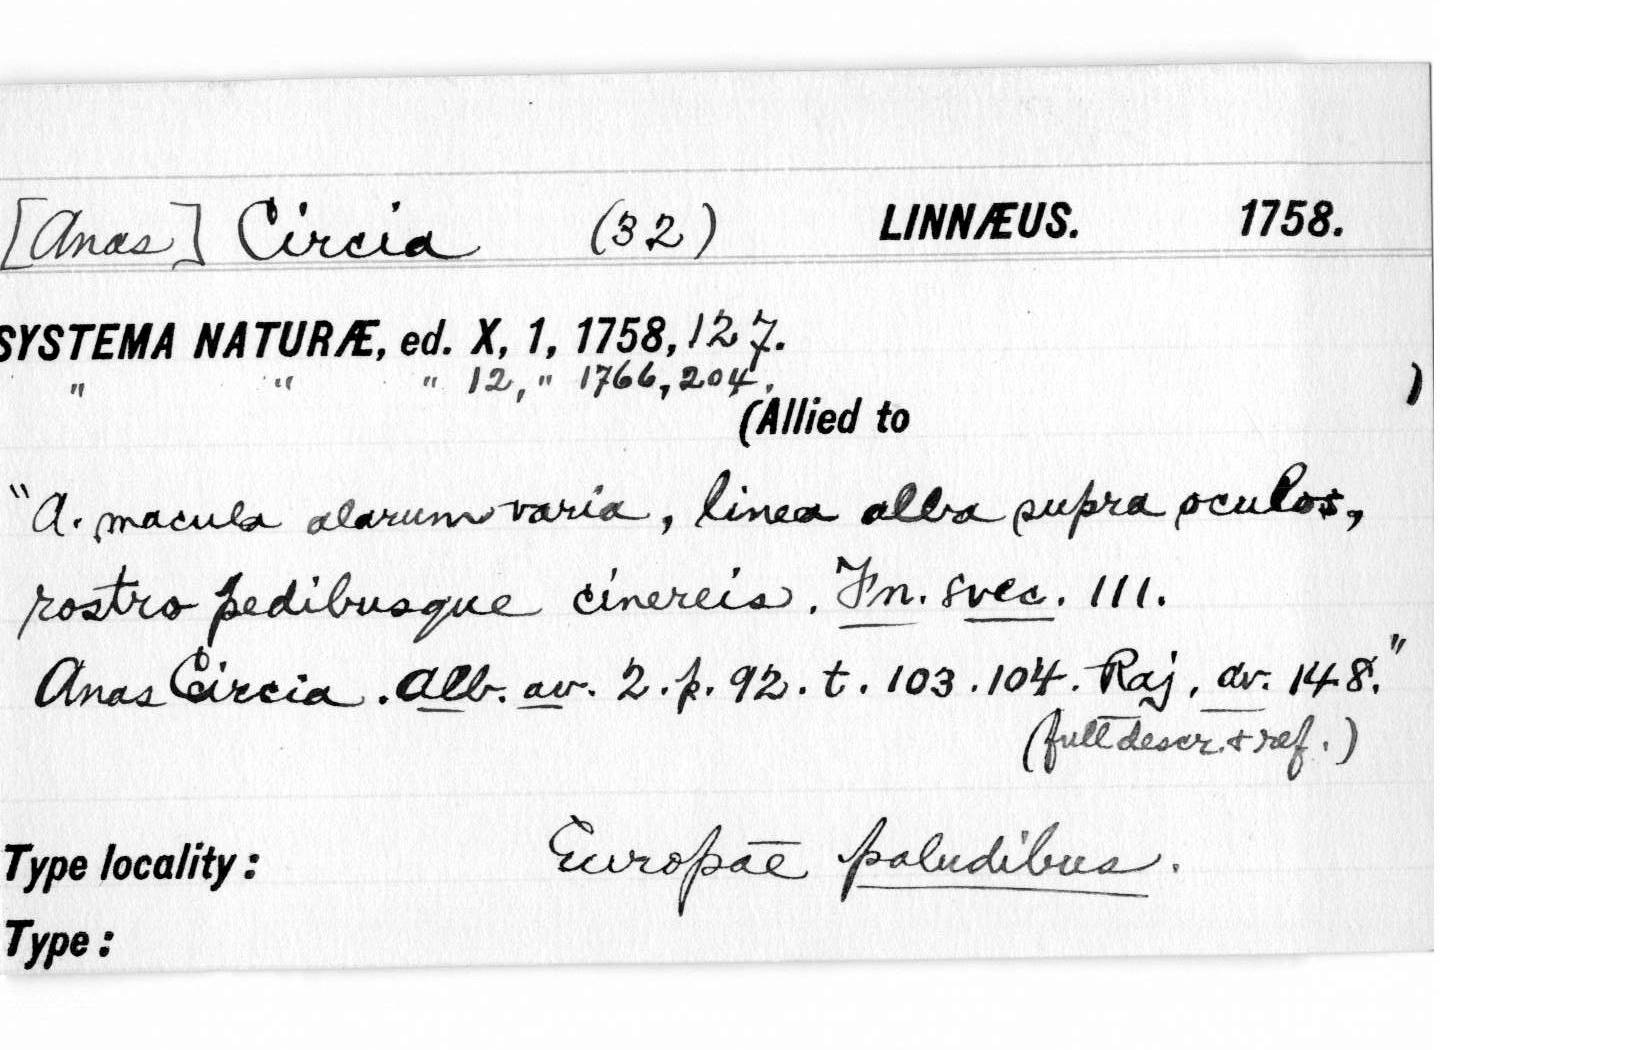 [Anas] Circia (32) LINNÆUS. 1758.
SYSTEMA NATURÆ, ed. X, 1, 1758, 127.
" " " 12, " 1766, 204.
(Allied to )
"A. macula alarum varia, linea alba supra oculos,
rostro pedibusque cinereis. Fn. svec. 111.
Anas Circia. Alb. av. 2. p. 92. t. 103. 104. Raj. av. 148."
(full descr. & ref.)
Type locality: Europae paludibus.
Type: